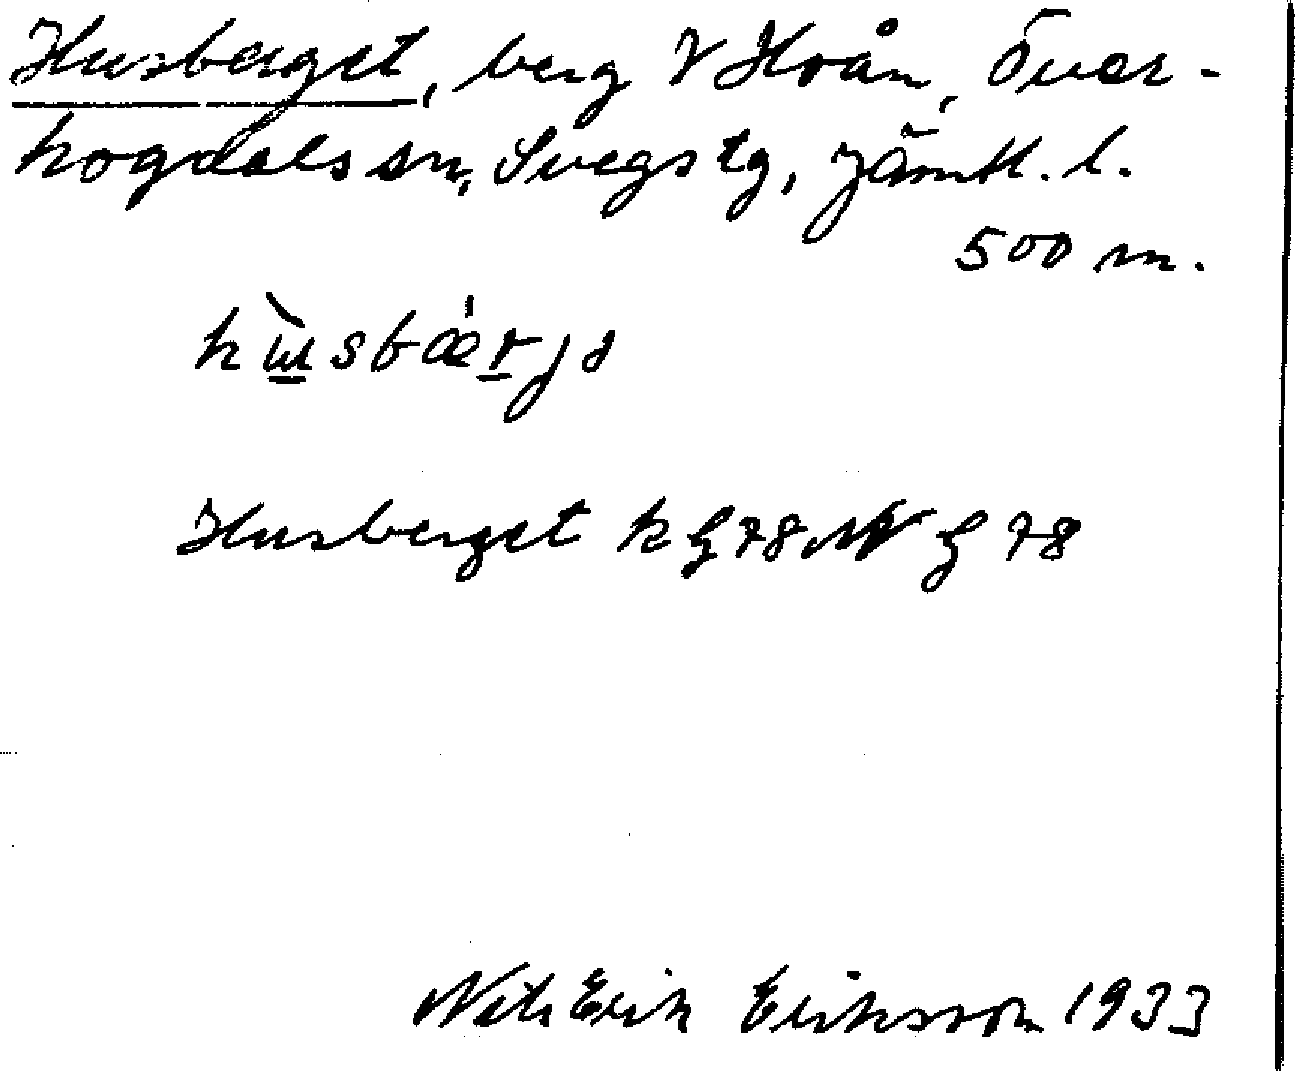 Husberget, berg V Hoån, Över-
hogdals sn, Svegs tg, Jämtl. l.
500 m.
hùsbǽrjə
Husberget k 78 NV 78
Nils Erik Eriksson 1933